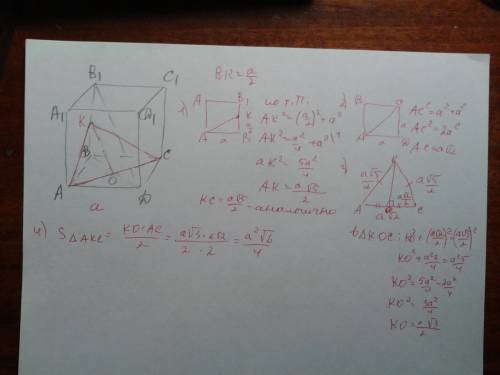 B₁
C₁
A₁
D₁
K
B
C
A
O
D
a
BK = a/2
1)
A
B₁
K
a
по т.П.
AK² = (a/2)² + a²
AK² = a²/4 + a²
AK² = 5a²/4
AK = a√5/2
KC = a√5/2 - аналогично
2)
B
a
A
a
AC² = a² + a²
AC² = 2a²
AC = a√2
K
a√5/2
a√5/2
A
C
a√2
в ΔKOC:
KO² + a²2/4 = a²5/4
KO² = 5a²/4 - 2a²/4
KO² = 3a²/4
KO = a√3/2
4) S ΔAKC = KO·AC/2 = a√3·a√2/2·2 = a²√6/4